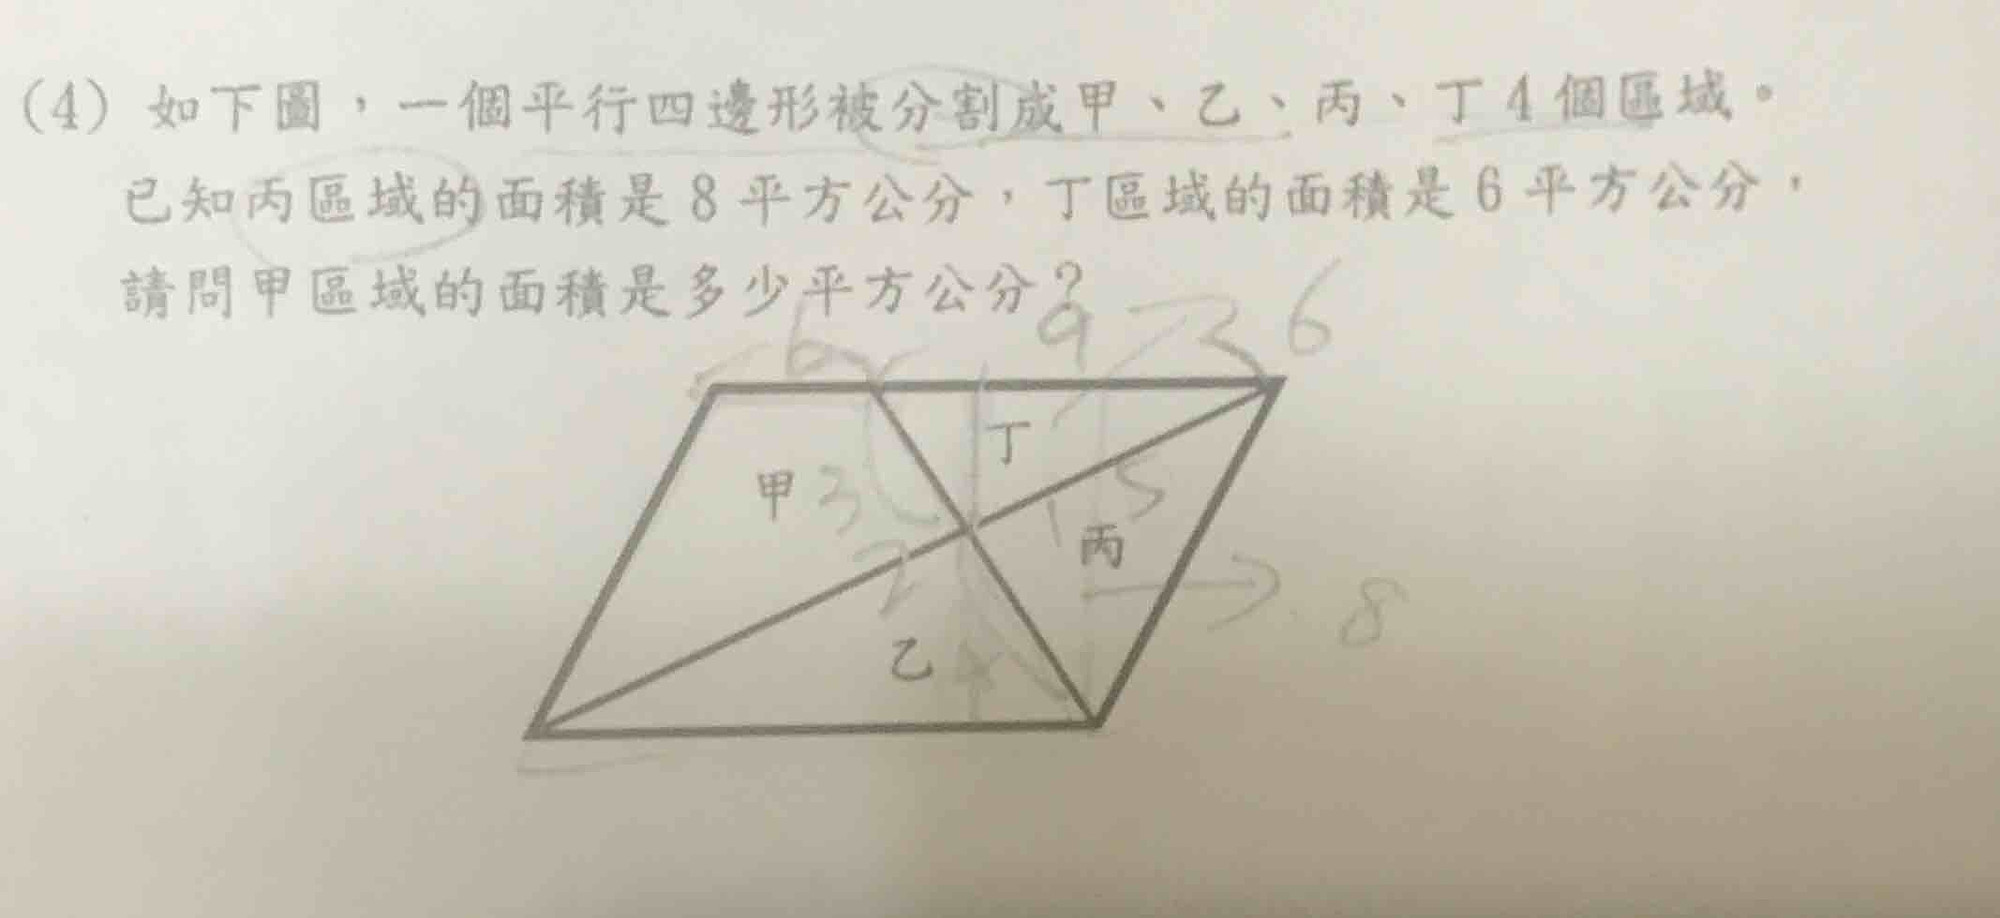 (4) 如下圖，一個平行四邊形被分割成甲、乙、丙、丁4個區域。
已知丙區域的面積是8平方公分，丁區域的面積是6平方公分，
請問甲區域的面積是多少平方公分？
6 9 6
丁
甲 3 5
丙
2 8
乙